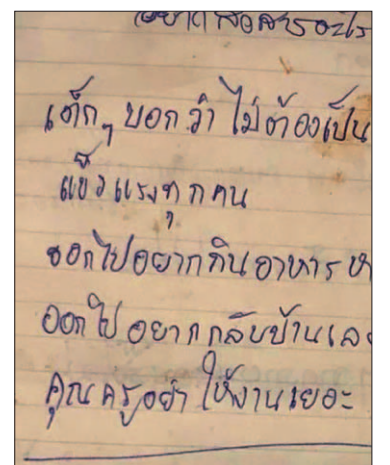 อยากสื่อสารอะไร
เด็กๆ บอกว่า ไม่ต้องเป็น
แข็งแรงทุกคน
ออกไปอยากกินอาหาร
ออกไปอยากกลับบ้านเลย
คุณครูอย่าให้งานเยอะ